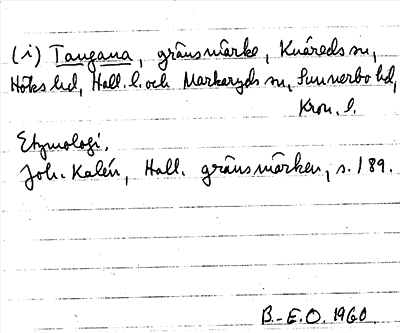 (i) Tangana, gränsmärke, Knäreds sn,
Höks hd, Hall. l. och Markaryds sn, Sunnerbo hd,
Kron. l.
Etymologi.
Joh. Kalén, Hall. gränsmärken, s. 189.
B.-E.O. 1960